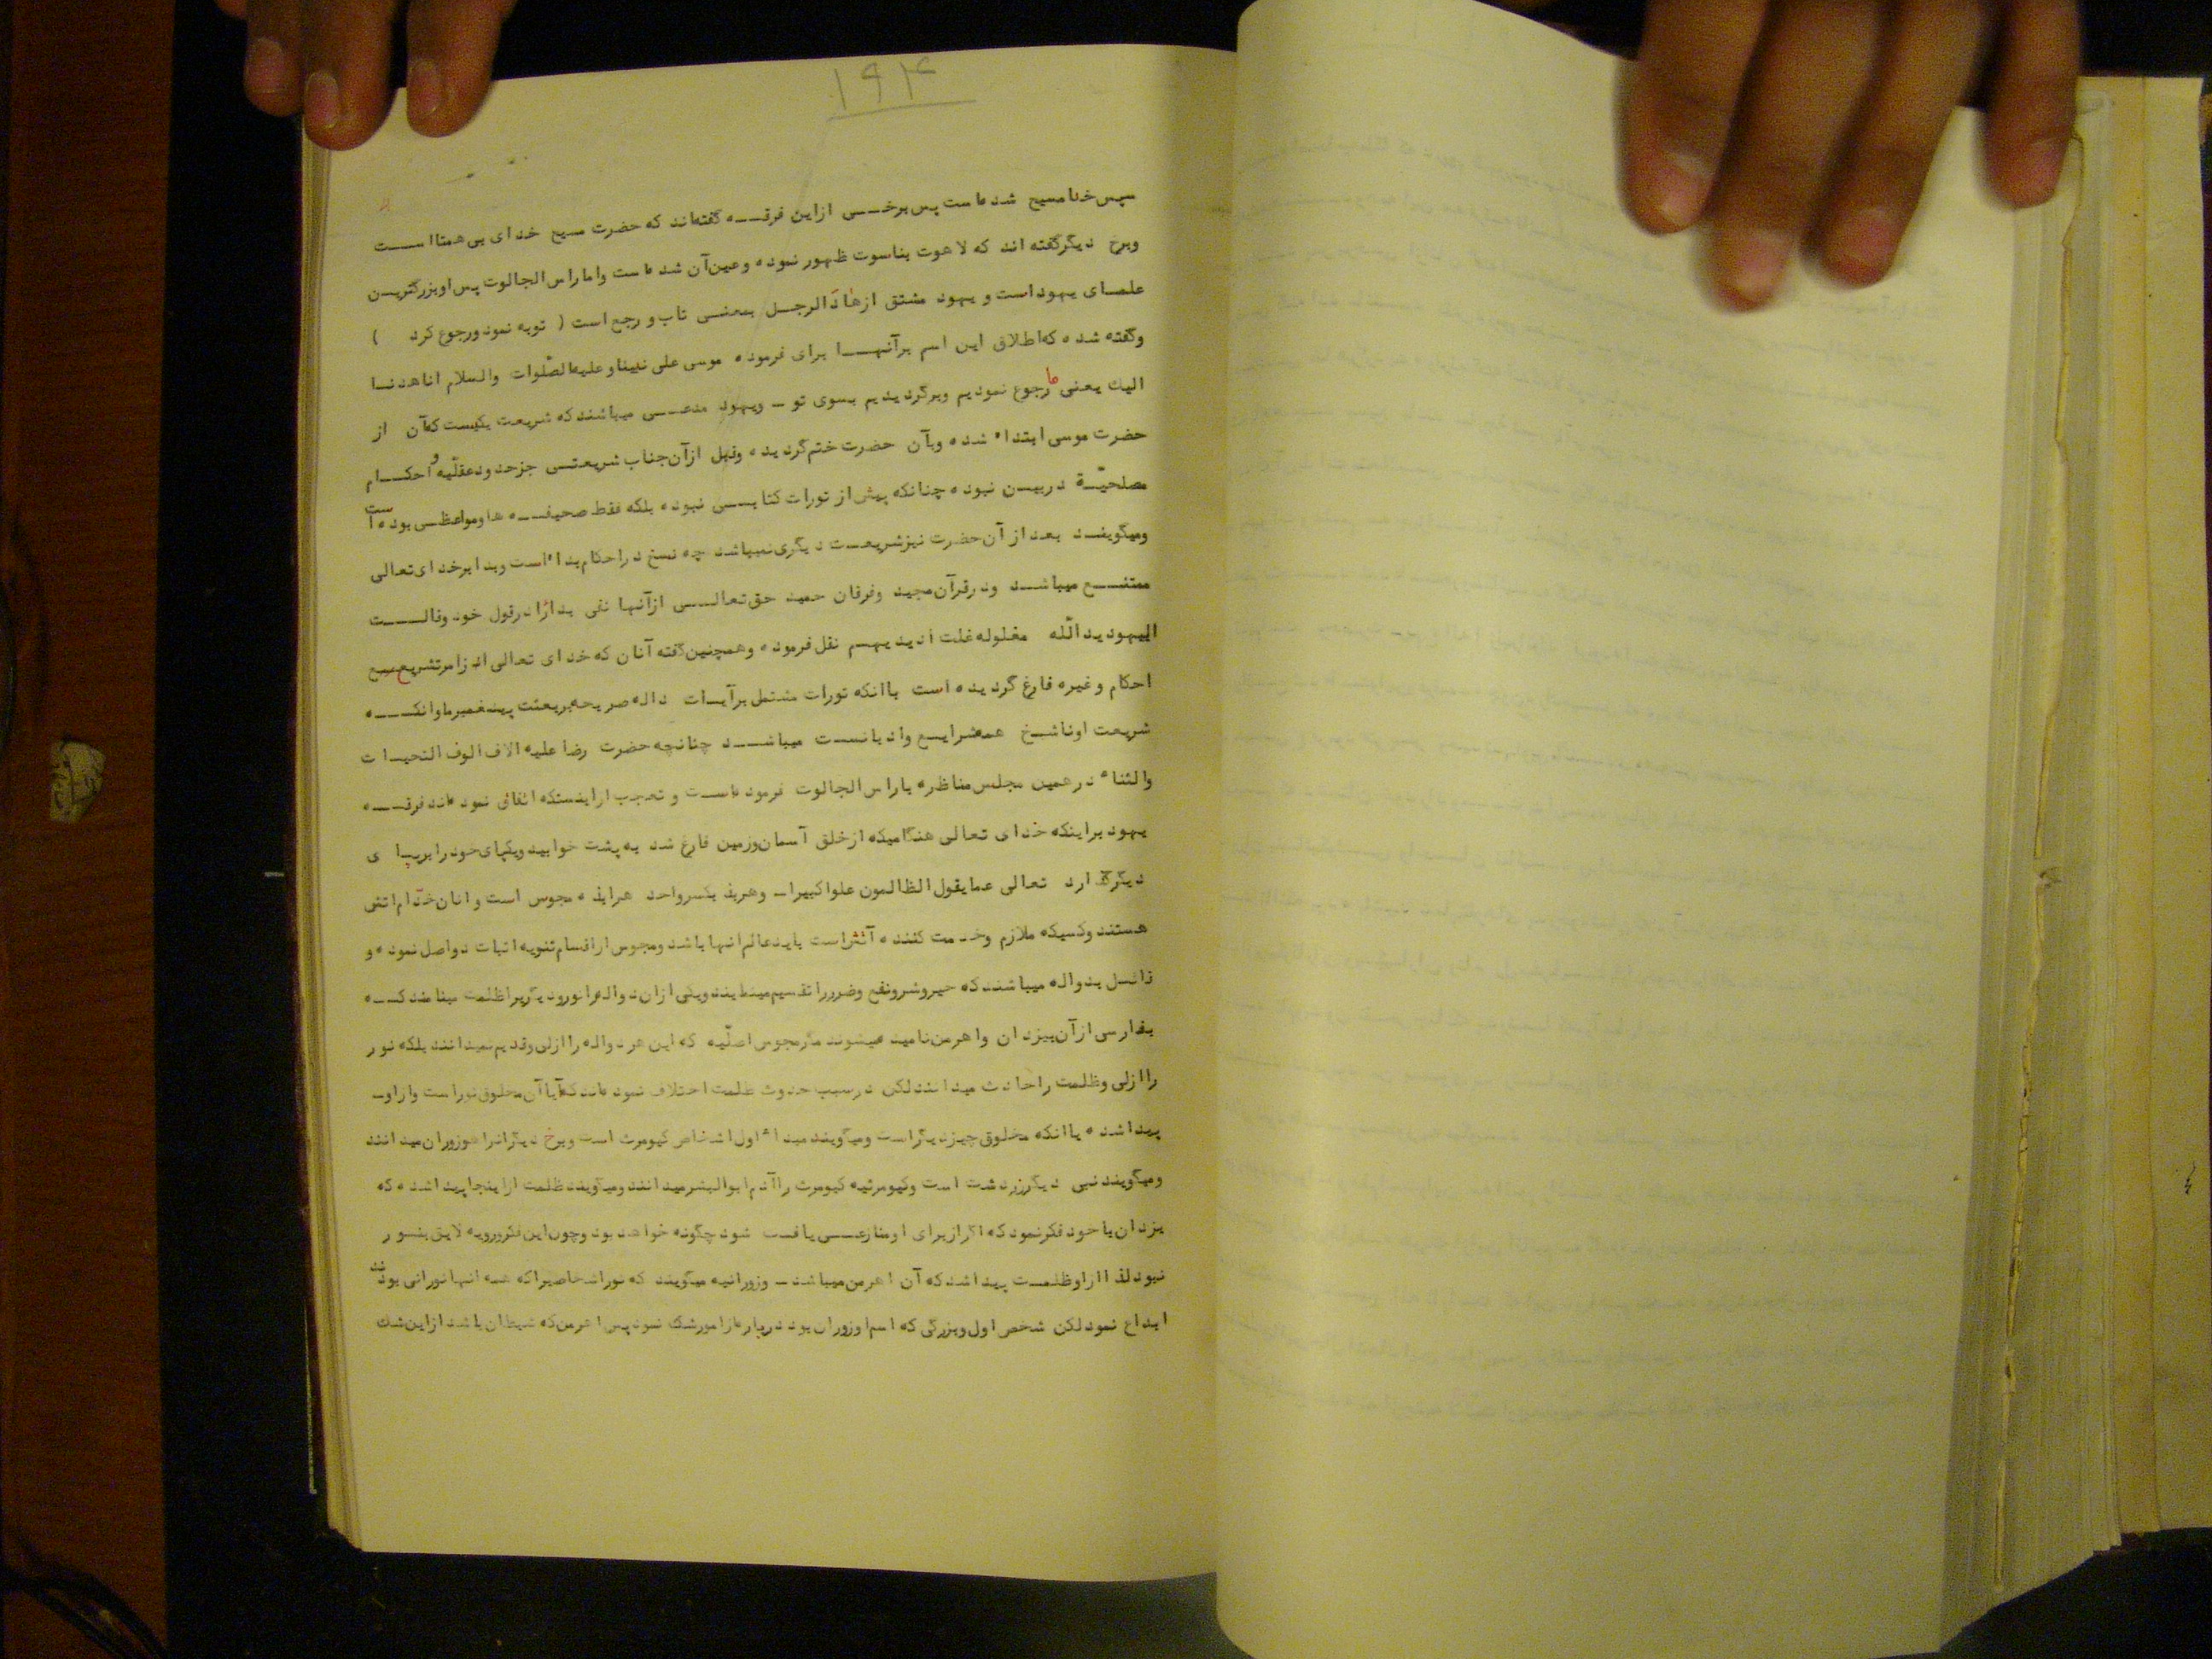 ۱۹۴
سپس خدا مسیح شده است پس برخی از این فرقه گفته‌اند که حضرت مسیح خدای بی همتا است
وبرخ دیگر گفته اند که لاهوت بناسوت ظهور نموده وعین آن شده است واما راس الجالوت پس او بزرگترین
علمای یهود است و یهود مشتق از هادَ الرجل بمعنی تاب و رجع است ( توبه نمود ورجوع کرد )
وگفته شده که اطلاق این اسم بر آنها برای فرموده موسی علی نبینا و علیه الصّلوات والسلام انا هدنا
الیك یعنی ما رجوع نمودیم وبرگردیدیم بسوی تو - ویهود مدعی میباشند که شریعت یکیست که آن از
حضرت موسی ابتداء شده وبآن حضرت ختم گردیده وقبل از آن جناب شریعتی جز حدود عقلّیه و احکام
مصلحیّة در بین نبوده چنانکه پیش از تورات کتابی نبوده بلکه فقط صحیفه ها ومواعظی بوده است
ومیگویند بعد از آن حضرت نیز شریعت دیگری نمیباشد چه نسخ در احکام بداء است وبدا بر خدای تعالی
ممتنع میباشد ودر قرآن مجید وفرقان حمید حق تعالی از آنها نفی بدا را در قول خود وقالت
الیهود ید الّله مغلوله غلت ایدیهم نقل فرموده وهمچنین گفته آنان که خدای تعالی از امر تشریع
احکام وغیره فارغ گردیده است با انکه تورات مشتمل بر آیات داله صریحه بر بعثت پیغمبر ما وانکه
شریعت او ناسخ همه شرایع وادیانست میباشد چنانچه حضرت رضا علیه الاف الوف التحیات
والثناء در همین مجلس مناظره با راس الجالوت فرموده است و تعجب از اینستکه اتفاق نموده‌اند فرقه
یهود بر اینکه خدای تعالی هنگامیکه از خلق آسمان وزمین فارغ شد به پشت خوابید ویکپای خود را بر پای
دیگر گذارد تعالی عما یقول الظالمون علوا کبیرا - وهربذ یکسر واحد هرابذه مجوس است و انان خدّام اتش
هستند وکسیکه ملازم وخدمت کننده آتش است باید عالم انها باشد ومجوس از اقسام ثنویه اثبات دو اصل نموده و
قائل بدو اله میباشند که خیر وشر ونفع وضرر را تقسیم مینمایند ویکی از ان دو اله را نور ودیگریرا ظلمت مینامند که
بفارسی از آن بیزدان واهرمن نامیده میشوند مگر مجوس اصلّیه که این هر دو اله را ازلی وقدیم نمیدانند بلکه نور
را ازلی وظلمت را حادث میدانند لکن در سبب حدوث ظلمت اختلاف نموده‌اند که آیا آن مخلوق نور است واز او
پیدا شده یا انکه مخلوق چیز دیگر است ومیگویند مبداء اول اشخاص کیومرث است وبرخ دیگر انرا هوزوران میدانند
ومیگویند نبی دیگر زردشت است وکیومرثیه کیومرث را آدم ابوالبشر میدانند ومیگویند ظلمت از اینجا پیدا شده که
یزدان با خود فکر نمود که اگر از برای او منازعی یافت شود چگونه خواهد بود وچون این فکر ورویه لایق بنور
نبود لذا از او ظلمت پیدا شد که آن اهرمن میباشد - وزورانیه میگویند که نور اشخاصیرا که همه انها نورانی بودند
ابداع نمود لکن شخص اول وبزرگی که اسم او زوران بود درباره از امور شك نمود پس اهرمن که شیطان باشد از این شك